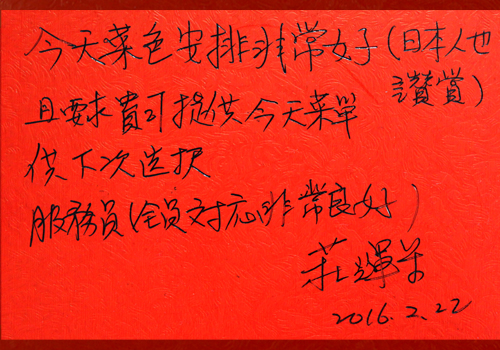 今天菜色安排非常好(日本人也
讚賞)
且要求貴司提供今天菜單
供下次选択
服務員(全员対応非常良好)
莊輝
2016.2.22